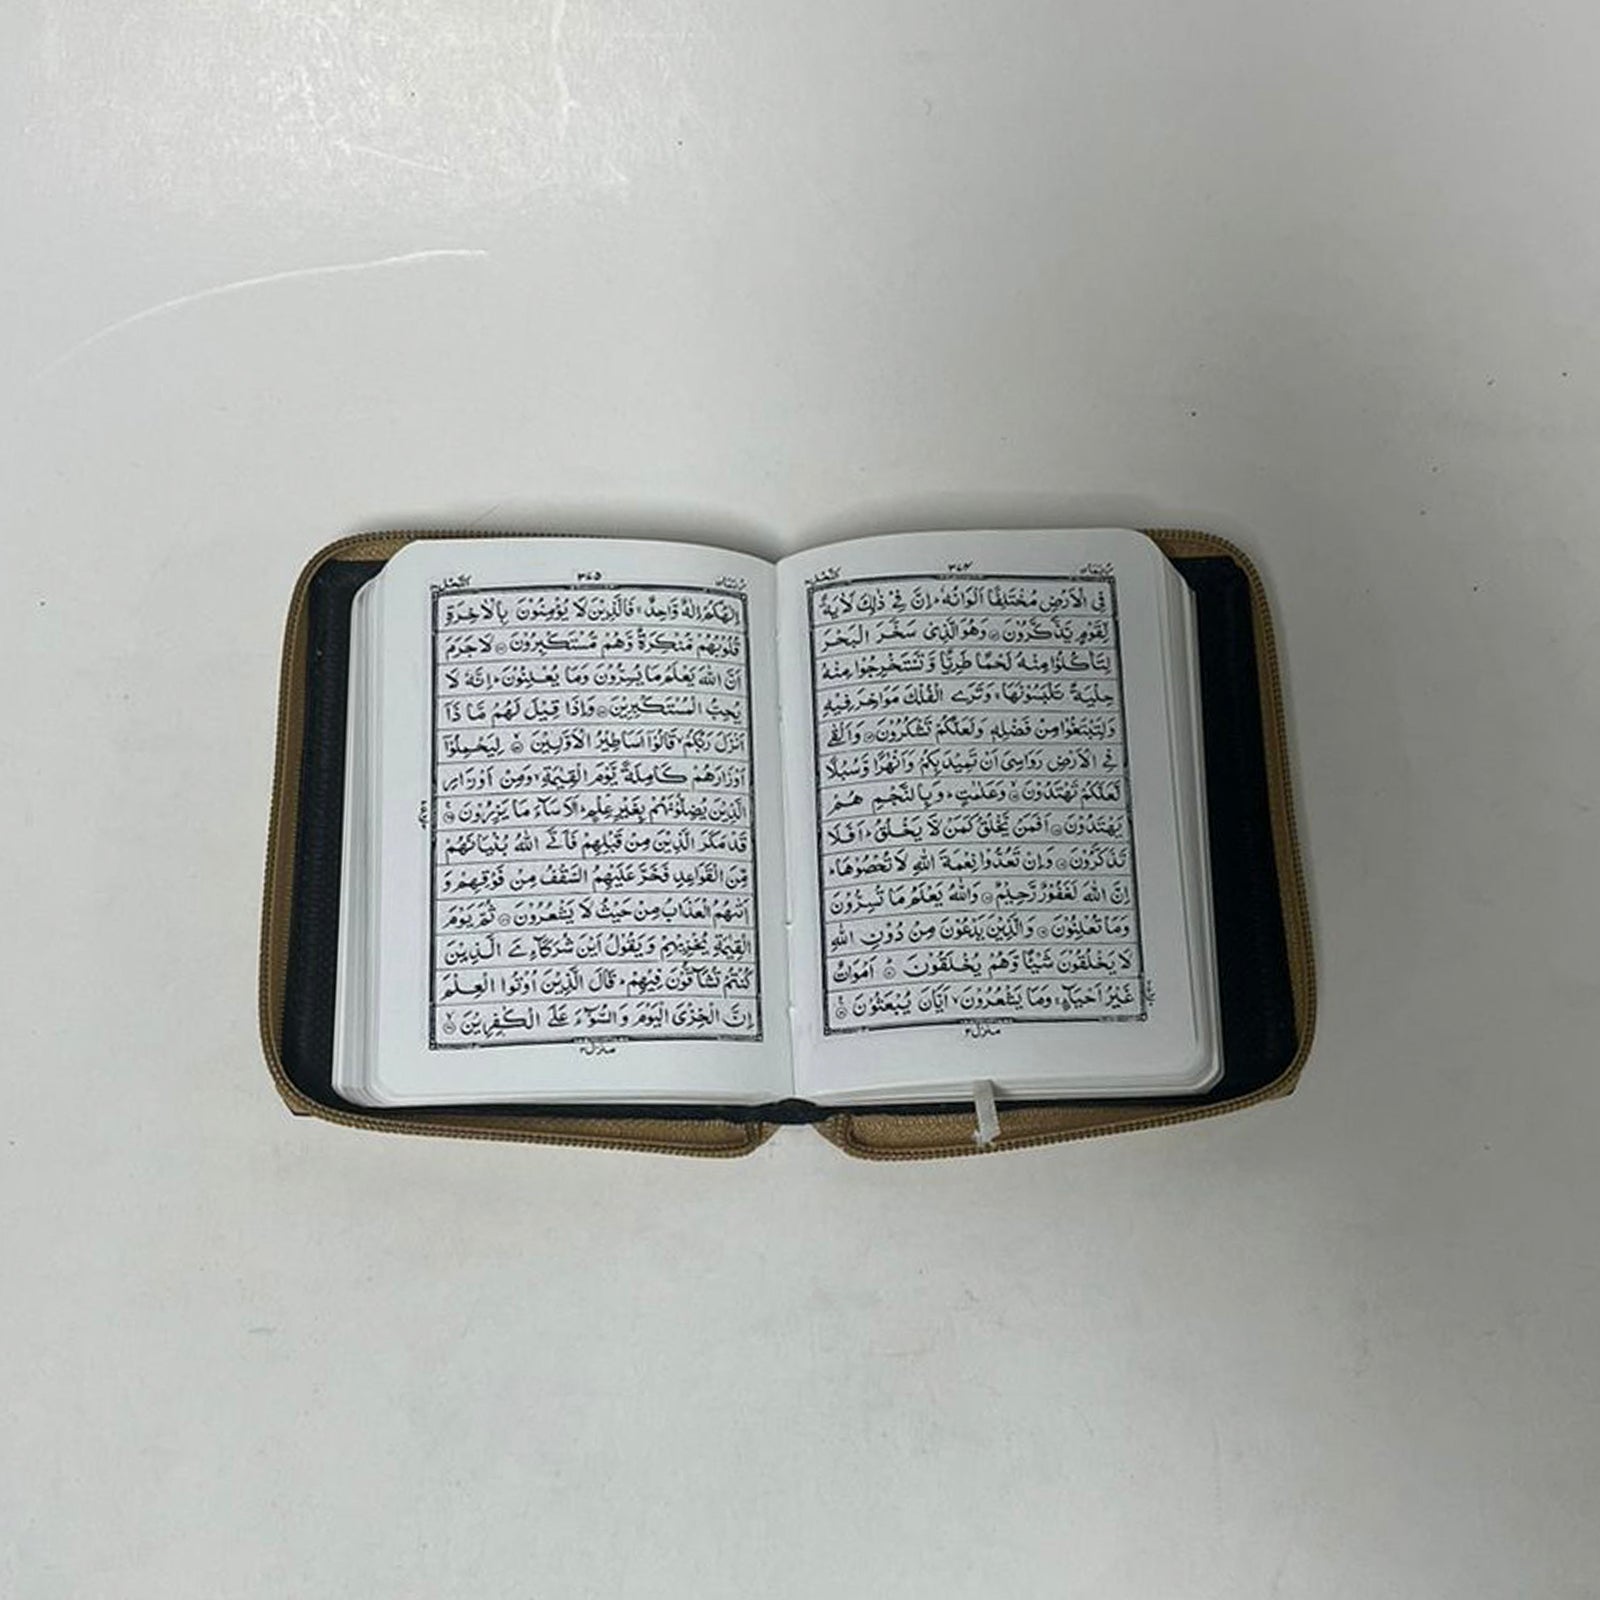 النحل ١٦
٣٧٤
ربما ١٤
فِي الْاَرْضِ مُخْتَلِفًا اَلْوَانُهٗ ؕ اِنَّ فِيْ ذٰلِكَ لَاٰيَةً
لِّقَوْمٍ يَّذَّكَّرُوْنَ ۝ وَهُوَ الَّذِيْ سَخَّرَ الْبَحْرَ
لِتَاْكُلُوْا مِنْهُ لَحْمًا طَرِيًّا وَّتَسْتَخْرِجُوْا مِنْهُ
حِلْيَةً تَلْبَسُوْنَهَا ۚ وَتَرَى الْفُلْكَ مَوَاخِرَ فِيْهِ
وَلِتَبْتَغُوْا مِنْ فَضْلِهٖ وَلَعَلَّكُمْ تَشْكُرُوْنَ ۝ وَاَلْقٰى
فِي الْاَرْضِ رَوَاسِيَ اَنْ تَمِيْدَ بِكُمْ وَاَنْهٰرًا وَّسُبُلًا
لَّعَلَّكُمْ تَهْتَدُوْنَ ۝ وَعَلٰمٰتٍ ؕ وَبِالنَّجْمِ هُمْ
يَهْتَدُوْنَ ۝ اَفَمَنْ يَّخْلُقُ كَمَنْ لَّا يَخْلُقُ ؕ اَفَلَا
تَذَكَّرُوْنَ ۝ وَاِنْ تَعُدُّوْا نِعْمَةَ اللّٰهِ لَا تُحْصُوْهَا ؕ
اِنَّ اللّٰهَ لَغَفُوْرٌ رَّحِيْمٌ ۝ وَاللّٰهُ يَعْلَمُ مَا تُسِرُّوْنَ
وَمَا تُعْلِنُوْنَ ۝ وَالَّذِيْنَ يَدْعُوْنَ مِنْ دُوْنِ اللّٰهِ
لَا يَخْلُقُوْنَ شَيْـًٔا وَّهُمْ يُخْلَقُوْنَ ۝ اَمْوَاتٌ
غَيْرُ اَحْيَآءٍ ۚ وَمَا يَشْعُرُوْنَ ۙ اَيَّانَ يُبْعَثُوْنَ ۝
منزل ٣
النحل ١٦
٣٧٥
ربما ١٤
اِلٰهُكُمْ اِلٰهٌ وَّاحِدٌ ۚ فَالَّذِيْنَ لَا يُؤْمِنُوْنَ بِالْاٰخِرَةِ
قُلُوْبُهُمْ مُّنْكِرَةٌ وَّهُمْ مُّسْتَكْبِرُوْنَ ۝ لَا جَرَمَ
اَنَّ اللّٰهَ يَعْلَمُ مَا يُسِرُّوْنَ وَمَا يُعْلِنُوْنَ ؕ اِنَّهٗ لَا
يُحِبُّ الْمُسْتَكْبِرِيْنَ ۝ وَاِذَا قِيْلَ لَهُمْ مَّا ذَاۤ
اَنْزَلَ رَبُّكُمْ ۙ قَالُوْۤا اَسَاطِيْرُ الْاَوَّلِيْنَ ۝ لِيَحْمِلُوْۤا
اَوْزَارَهُمْ كَامِلَةً يَّوْمَ الْقِيٰمَةِ ۙ وَمِنْ اَوْزَارِ
الَّذِيْنَ يُضِلُّوْنَهُمْ بِغَيْرِ عِلْمٍ ؕ اَلَا سَآءَ مَا يَزِرُوْنَ ۝
قَدْ مَكَرَ الَّذِيْنَ مِنْ قَبْلِهِمْ فَاَتَى اللّٰهُ بُنْيَانَهُمْ
مِّنَ الْقَوَاعِدِ فَخَرَّ عَلَيْهِمُ السَّقْفُ مِنْ فَوْقِهِمْ وَ
اَتٰىهُمُ الْعَذَابُ مِنْ حَيْثُ لَا يَشْعُرُوْنَ ۝ ثُمَّ يَوْمَ
الْقِيٰمَةِ يُخْزِيْهِمْ وَيَقُوْلُ اَيْنَ شُرَكَآءِيَ الَّذِيْنَ
كُنْتُمْ تُشَآقُّوْنَ فِيْهِمْ ؕ قَالَ الَّذِيْنَ اُوْتُوا الْعِلْمَ
اِنَّ الْخِزْيَ الْيَوْمَ وَالسُّوْٓءَ عَلَى الْكٰفِرِيْنَ ۝
منزل ٣